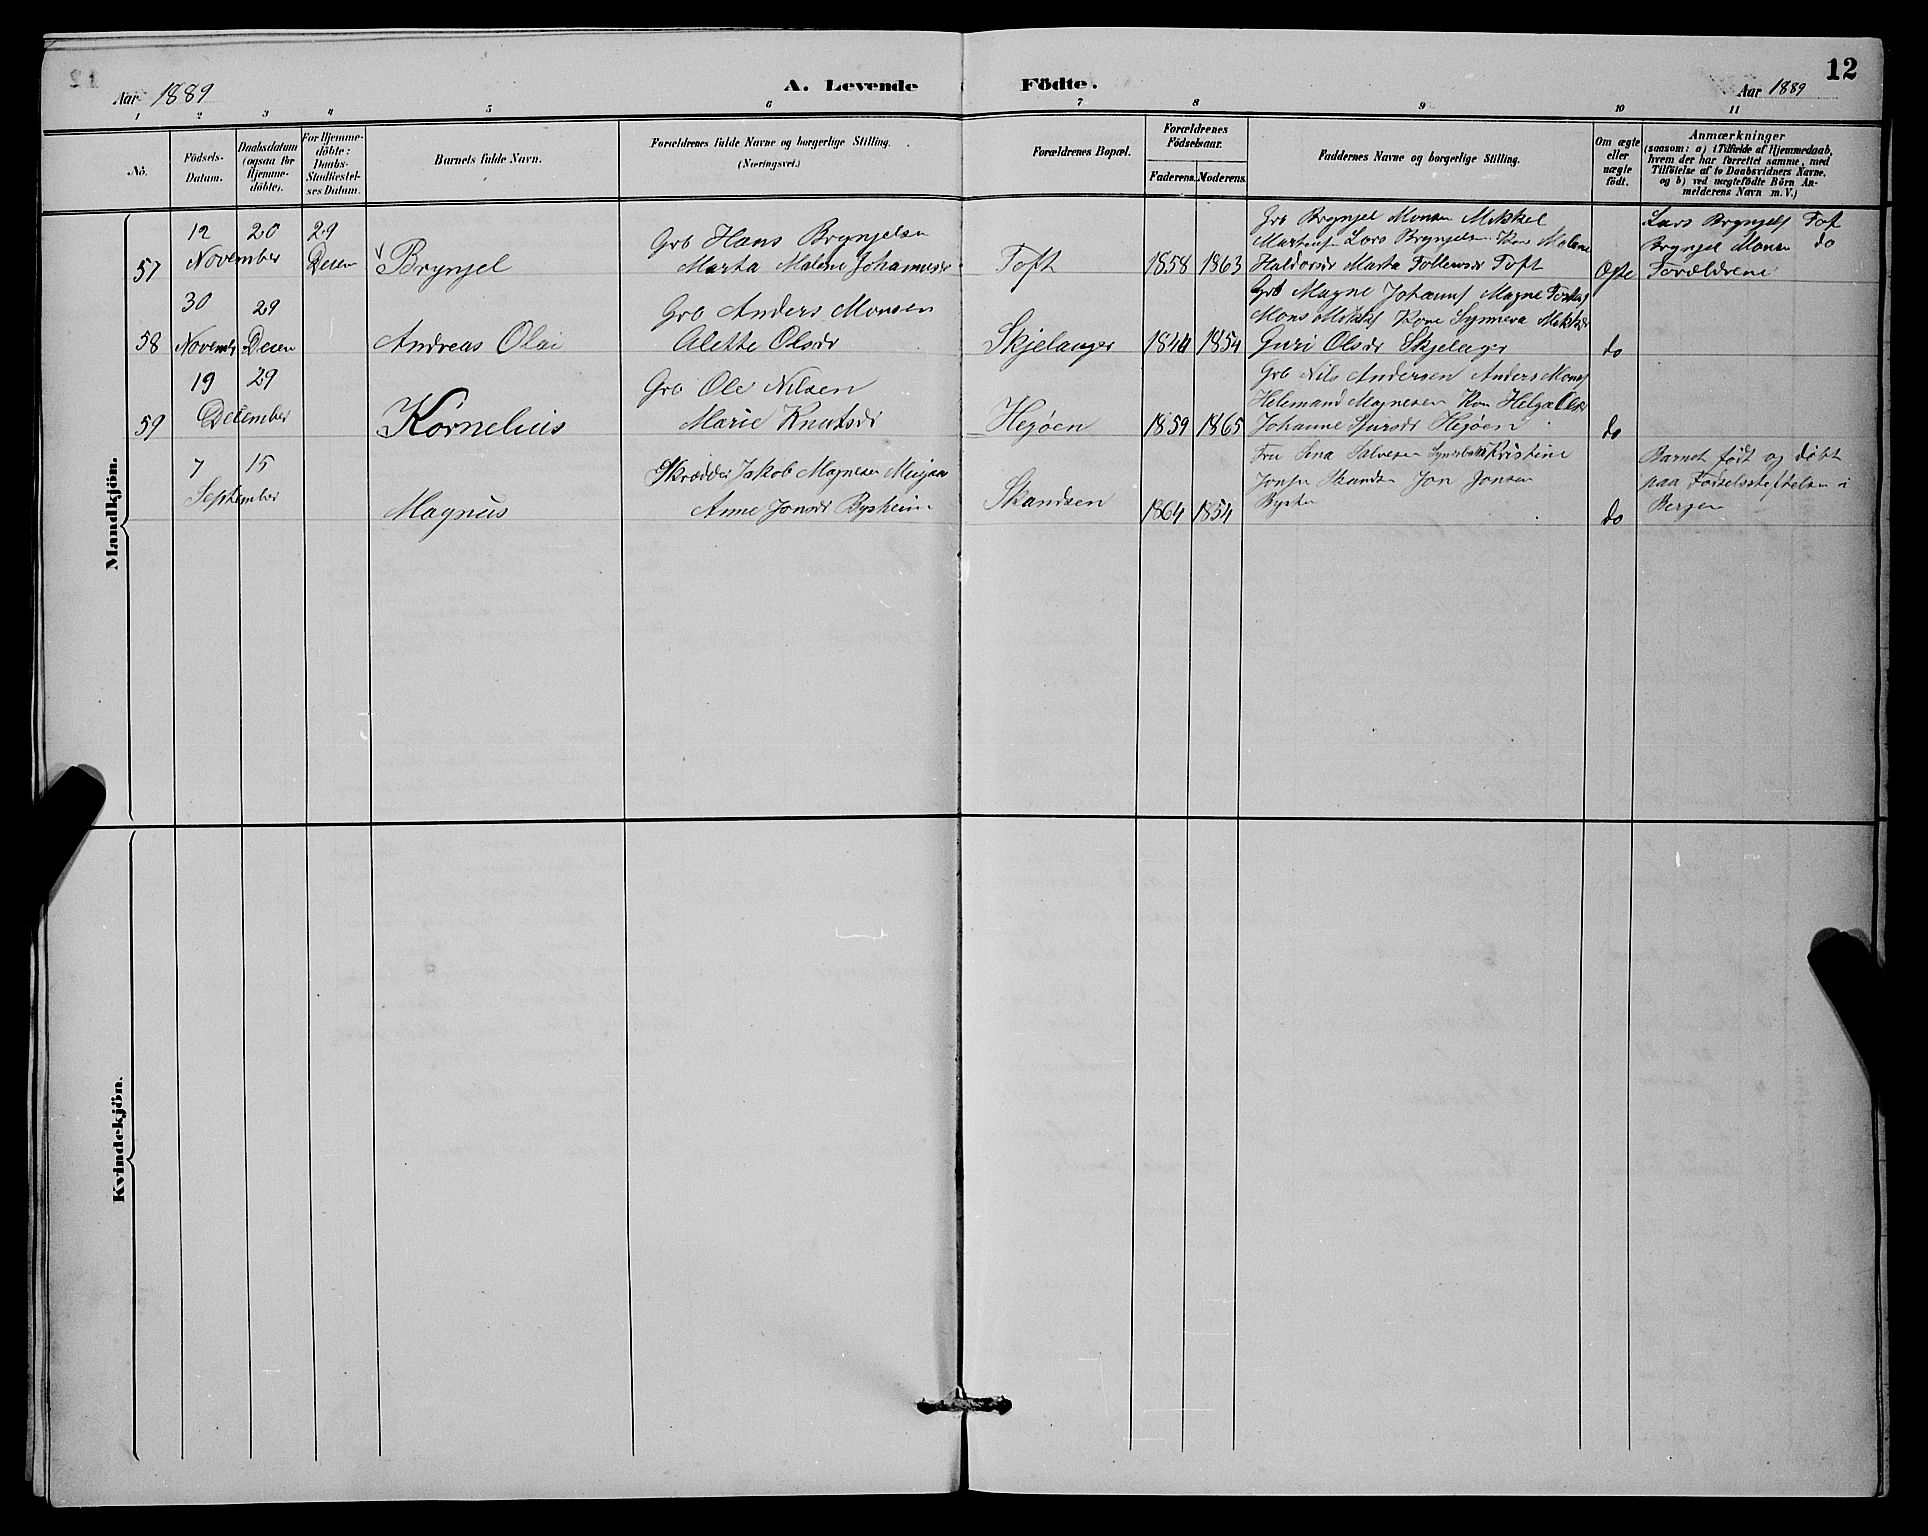 12
Aar 1889
A. Levende Födte.
Aar 1889
1 2 3 4 5 6 7 8 9 10 11
No.
Födsels-
Datum.
Daabsdatum
(ogsaa for
Hjemme-
döbte).
For Hjemme-
döbte:
Daabs-
Stadfæstel-
ses Datum.
Barnets fulde Navn.
Forældrenes fulde Navne og borgerlige Stilling.
(Næringsvei.)
Forældrenes Bopæl.
Forældrenes
Födselsaar.
Faderens.
Moderens.
Faddernes Navne og borgerlige Stilling.
Om ægte
eller
uægte
födt.
Anmærkninger
(saasom: a) i Tilfælde af Hjemmedaab,
hvem der har forrettet samme, med
Tilföielse af to Daabsvidners Navne,
og b) ved uægtefödte Börn An-
melderens Navn m. V.)
Mandkjön.
57
12
November
20
29
Decem
Brynjel
Grb Hans Brynjelsen
Marta Malene Johannesdr
Toft
1858
1863
Grb Brynjel Monsen Mikkel
Martinsen Lars Brynjelsen Kone Malene
Haldorsdr Marta Tollevsdr Toft
Ægte
Lars Brynjels Toft
Brynjel Monsen do
Forældrene
58
30
Novembr
29
Decem
Andreas Olai
Grb Anders Monsen
Alette Olsdr
Skjelanger
1844
1854
Grb Magne Johanns Magne
Mons Mikks Kone Synneva Mikksdr
Guri Olsdr Skjelanger
do
59
19
December
29
Kornelius
Grb Ole Nilsen
Marie Knutsdr
Hegöen
1859
1865
Grb Nils Andersen Anders Mons
Helemand Magnesen Kone Helga Olsdr
Johanne Sjursdr Hegöen
do
7
September
15
Magnus
Skrædder Jakob Magnesen
Anne Jonsdr Bysheim
Skandsen
1864
1854
Fru Lina Salvesen Kristine
Skandsen Jon Jonsen
do
Barnet født og døbt
paa Fødselsstiftelsen i
Bergen
Kvindekjön.